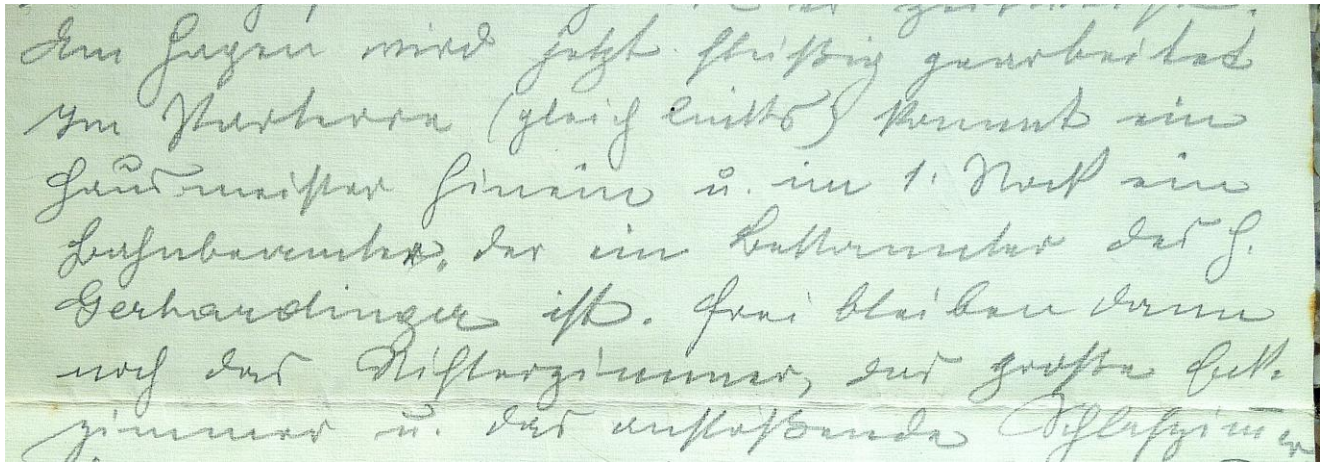 Am Hagen wird jetzt fleißig gearbeitet
Im Parterre (gleich links) kommt ein
Hausmeister hinein u. im 1. Stock ein
Bahnbeamter, der ein Bekannter des H.
Gerhardinger ist. Frei bleiben dann
noch das Richterzimmer, das große Eck-
zimmer u. das anstoßende Schlafzimmer